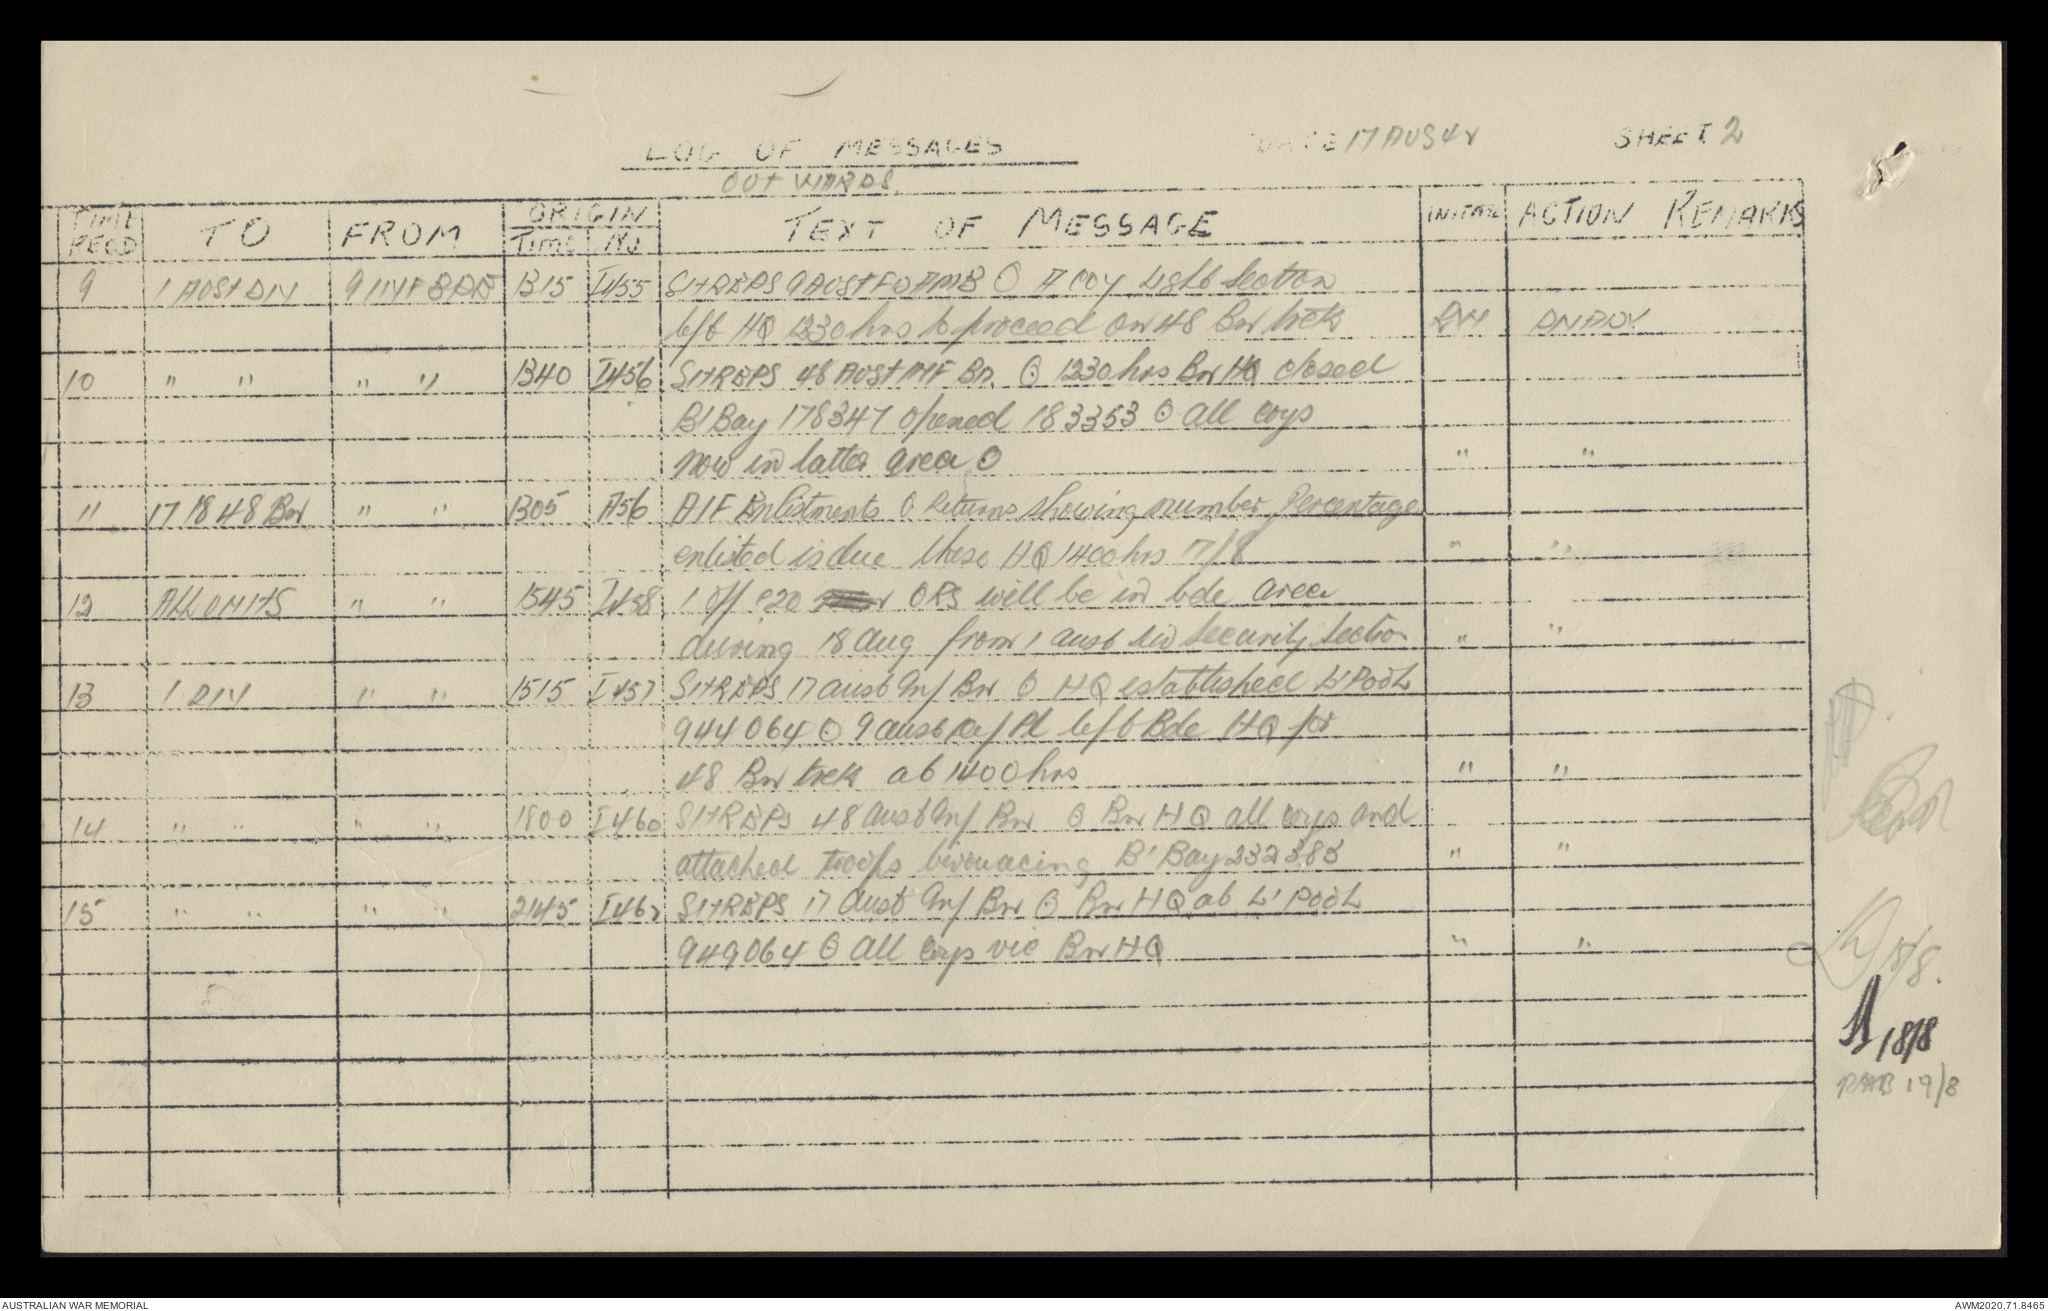 LOG OF MESSAGES
OUTWARDS
DATE 17 AUG 42
SHEET 2
TIME RECD TO FROM ORIGIN TIME No TEXT OF MESSAGE INITIAL ACTION REMARKS
9 1 AUST DIV 9 INF BDE 1315 I455 SITREPS 9 AUST FD AMB ⊙ A COY light section
left HQ 1230 hrs to proceed on 48 Bn trek
10 " " " " 1340 I456 SITREPS 48 AUST INF Bn. ⊙ 1230 hrs Bn HQ closed
B'Bay 178347 opened 183353 ⊙ all coys
now in latter area ⊙ " "
11 17 18 48 Bn " " 1305 A56 AIF Enlistments ⊙ Returns showing number, Percentage
enlisted is due these HQ 1400 hrs 17/8 " "
12 ALL UNITS " " 1545 I458 1 off 20 ORS will be in bde area
during 18 Aug from 1 aust div Security Section " "
13 1 DIV " " 1515 I457 SITREPS 17 aust Inf Bn ⊙ HQ established L'POOL
944064 ⊙ 9 aust Pl left Bde HQ for
48 Bn trek at 1400 hrs " "
14 " " " " 1800 I460 SITREPS 48 aust Inf Bn ⊙ Bn HQ all coys and
attached troops bivouacing B'Bay 232383 " "
15 " " " " 2145 I462 SITREPS 17 aust Inf Bn ⊙ Bn HQ at L'POOL
949064 ⊙ all coys vic Bn HQ " "
18/8.
18/8
19/8
AUSTRALIAN WAR MEMORIAL
AWM2020.71.8465